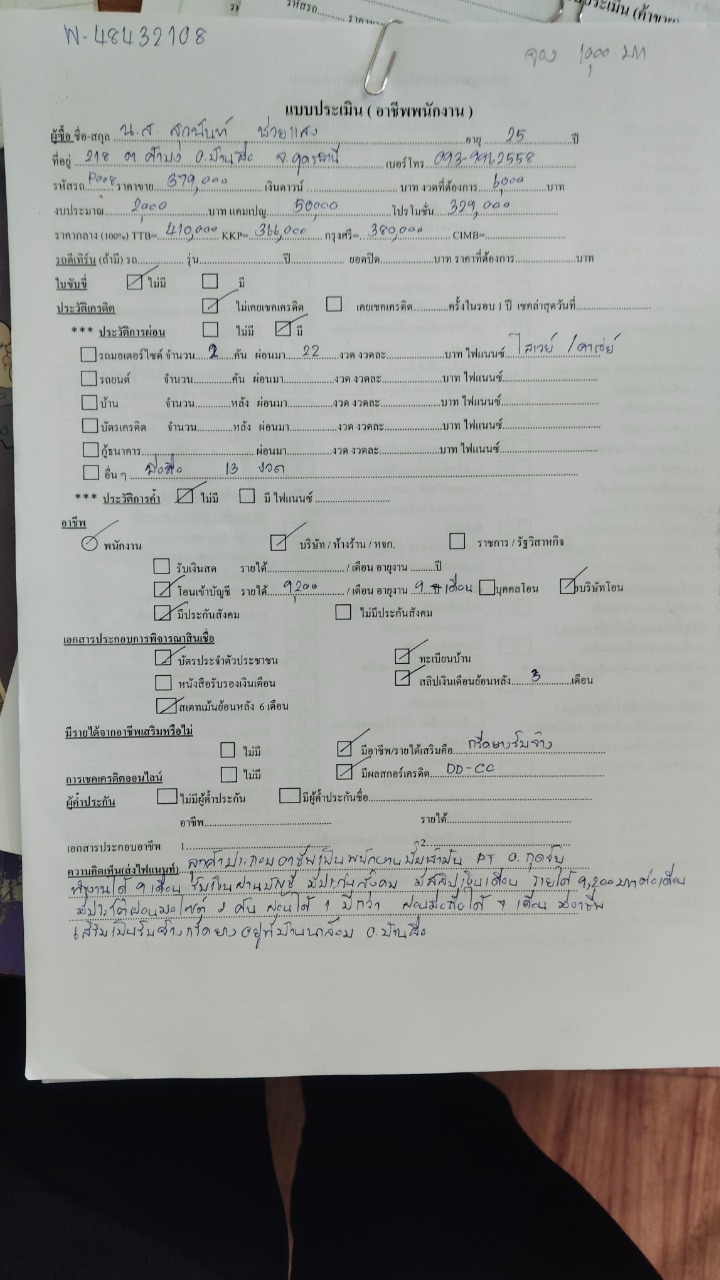 W-48432108
จอง 1,000 บาท
แบบประเมิน ( อาชีพพนักงาน )
ผู้ซื้อ ชื่อ-สกุล น.ส. สุวนันท์ ช่วยแสง อายุ 25 ปี
ที่อยู่ 218 ต คำบง อ.บ้านผือ จ.อุดรธานี เบอร์โทร 093-9962558
รหัสรถ P008 ราคาขาย 379,000 เงินดาวน์ บาท งวดที่ต้องการ 6,000 บาท
งบประมาณ 2,000 บาท แคมเปญ 50,000 โปรโมชั่น 329,000
ราคากลาง (100%) TTB= 410,000 KKP= 366,000 กรุงศรี= 380,000 CIMB=
รถตีเทิร์น (ถ้ามี) รถ รุ่น ปี ยอดปิด บาท ราคาที่ต้องการ บาท
ใบขับขี่ ไม่มี มี
ประวัติเครดิต ไม่เคยเชคเครดิต เคยเชคเครดิต ครั้งในรอบ 1 ปี เชคล่าสุดวันที่
*** ประวัติการผ่อน ไม่มี มี
รถมอเตอร์ไซด์ จำนวน 2 คัน ผ่อนมา 22 งวด งวดละ บาท ไฟแนนซ์
รถยนต์ จำนวน คัน ผ่อนมา งวด งวดละ บาท ไฟแนนซ์
บ้าน จำนวน หลัง ผ่อนมา งวด งวดละ บาท ไฟแนนซ์
บัตรเครดิต จำนวน หลัง ผ่อนมา งวด งวดละ บาท ไฟแนนซ์
กู้ธนาคาร ผ่อนมา งวด งวดละ บาท ไฟแนนซ์
อื่น ๆ 13 งวด
*** ประวัติการค้ำ ไม่มี มี ไฟแนนซ์
อาชีพ
พนักงาน บริษัท / ห้างร้าน / หจก. ราชการ / รัฐวิสาหกิจ
รับเงินสด รายได้ / เดือน อายุงาน ปี
โอนเข้าบัญชี รายได้ 9,200 / เดือน อายุงาน 9 เดือน บุคคลโอน บริษัทโอน
มีประกันสังคม ไม่มีประกันสังคม
เอกสารประกอบการพิจารณาสินเชื่อ
บัตรประจำตัวประชาชน ทะเบียนบ้าน
หนังสือรับรองเงินเดือน สลิปเงินเดือนย้อนหลัง 3 เดือน
สเตทเม้นย้อนหลัง 6 เดือน
มีรายได้จากอาชีพเสริมหรือไม่
ไม่มี มีอาชีพ/รายได้เสริมคือ กรีดยางรับจ้าง
การเชคเครดิตออนไลน์ ไม่มี มีผลสกอร์เครดิต DD-CC
ผู้ค้ำประกัน ไม่มีผู้ค้ำประกัน มีผู้ค้ำประกันชื่อ
อาชีพ รายได้
เอกสารประกอบอาชีพ 1 2
ความคิดเห็น(ส่งไฟแนนท์) ลูกค้าประกอบอาชีพเป็นพนักงานปั๊มน้ำมัน PT อ.กุดจับ
ทำงานได้ 9 เดือน รับเงินผ่านบัญชี มีประกันสังคม มีสลิปเงินเดือน รายได้ 9,200 บาทต่อเดือน
มีประวัติผ่อนมอไซต์ 2 คัน ผ่อนได้ 1 ปีกว่า ผ่อนมือถือได้ 7 เดือน มีอาชีพ
เสริมเป็นรับจ้างกรีดยาง อยู่ที่บ้าน อ.บ้านผือ